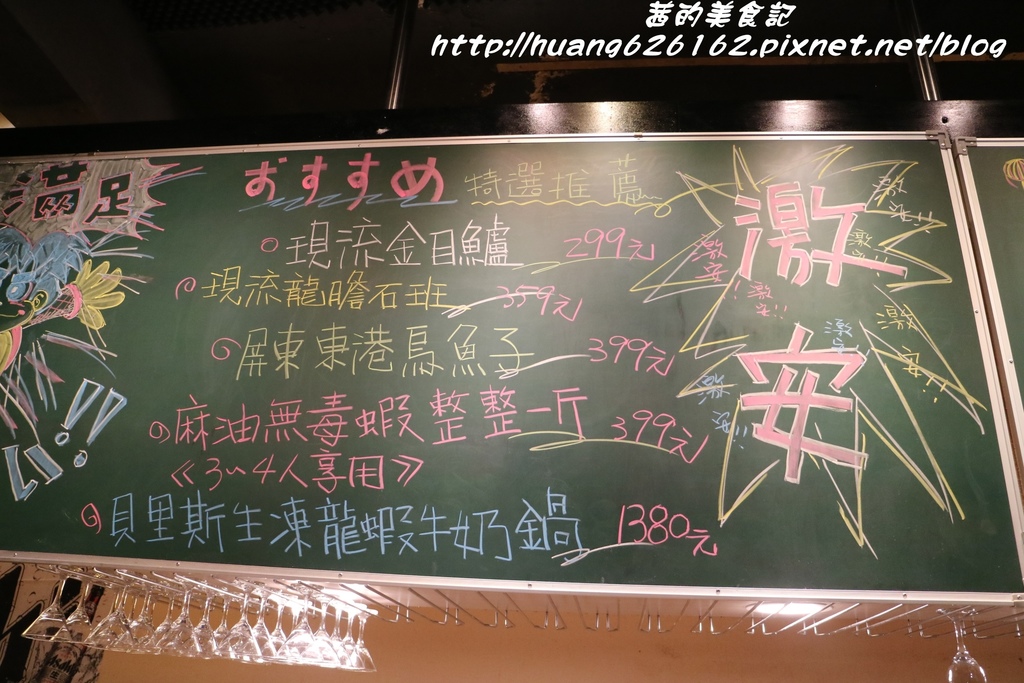 茜的美食記
http://huang626162.pixnet.net/blog
満足
おすすめ 特選推薦
現流金目鱸 299元
現流龍膽石班 359元
屏東東港烏魚子 399元
麻油無毒蝦 整整一斤 399元
《3~4人享用》
貝里斯生凍龍蝦牛奶鍋 1380元
い!!
激安
激安!!
激安!!
激安!
激安!!
激安!!
激安!!
激安!!